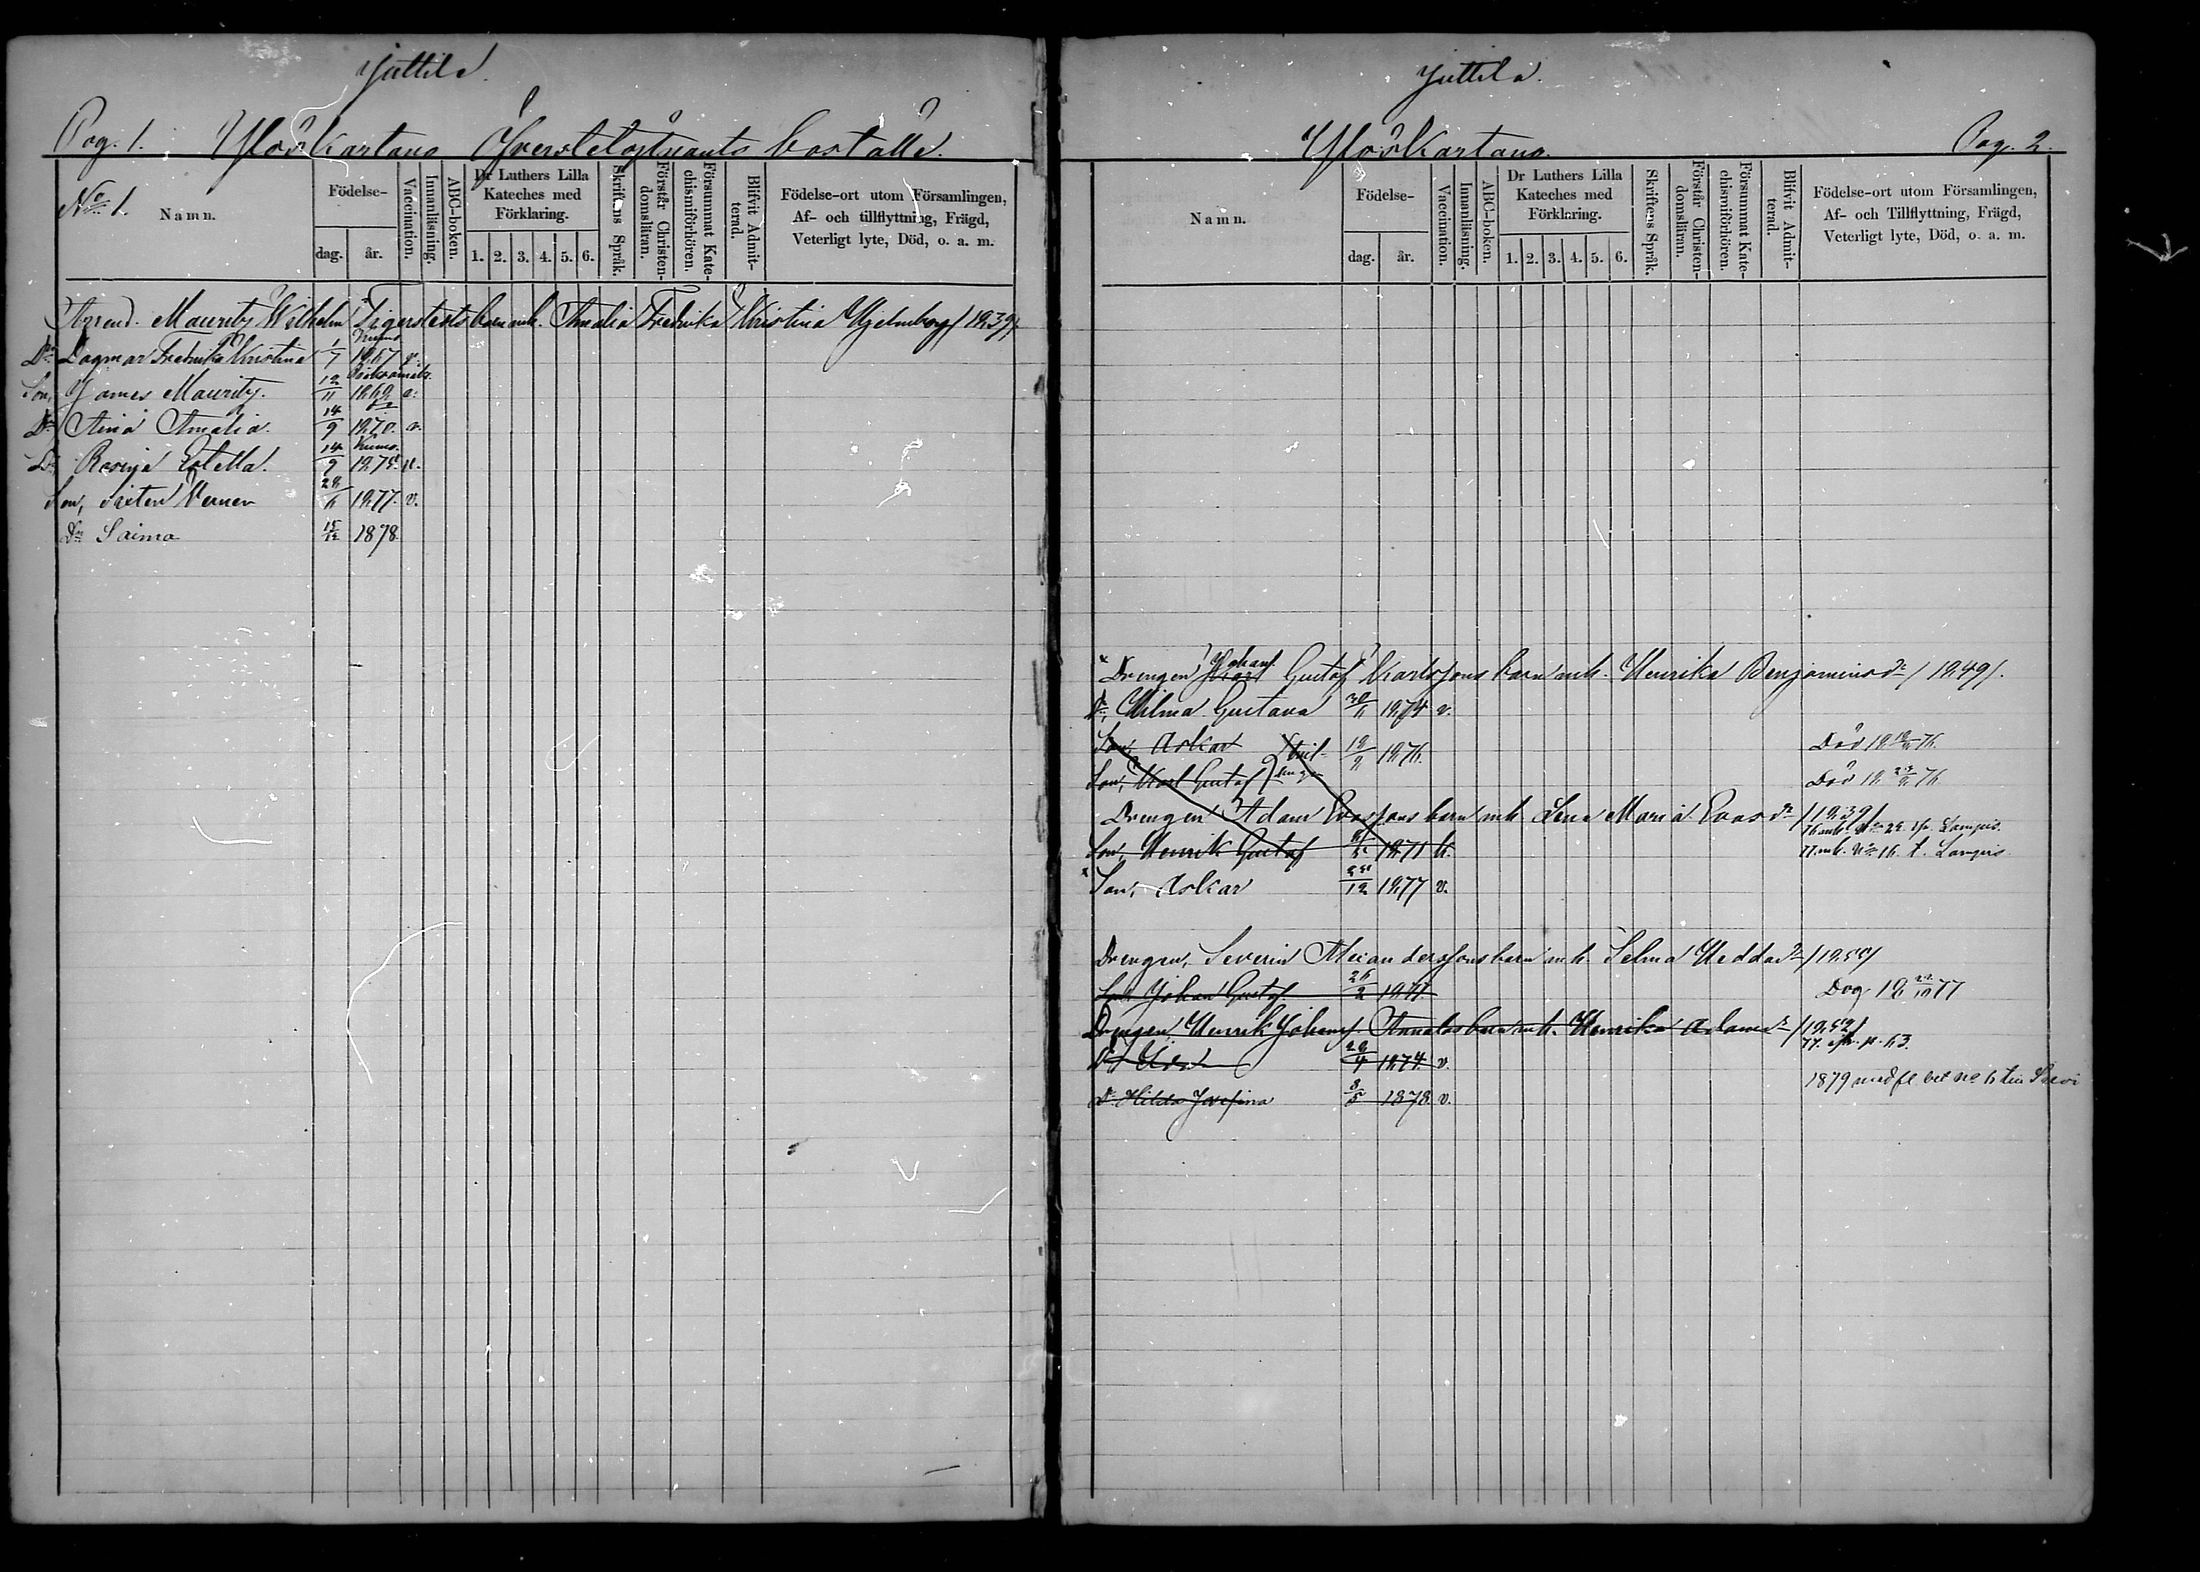 Juttila.
Pag. 1. Ylöskartano Öfverstelöjtnants boställe.
No 1. Namn.
Födelse-
dag. år.
Vaccination.
Innanläsning.
ABC-boken.
Dr Luthers Lilla Kateches med Förklaring.
1. 2. 3. 4. 5. 6.
Skriftens Språk.
Förstår Christen-domsläran.
Försummat Kate-chismiförhören.
Blifvit Admit-terad.
Födelse-ort utom Församlingen,
Af- och tillflyttning, Frägd,
Veterligt lyte, Död, o. a. m.
Arrend. Mauritz Wilhelm Tigerstedts barn mh. Amalia Fredrika Kristina Hjelmborg /1839/.
Kumo
Dr Dagmar Fredrika Kristina 1/7 1867 v.
Son, James Mauritz. 12/11 1869 v.
Dr Aina Amalia. 14/9 1870. v.
Kumo.
Dr Ester Estella. 14/9 1875 v.
Son, Sixten Verner 28/6 1877. v.
Dr Saima 15/12 1878.
Juttila.
Ylöskartano. Pag. 2.
Namn.
Födelse-
dag. år.
Vaccination.
Innanläsning.
ABC-boken.
Dr Luthers Lilla Kateches med Förklaring.
1. 2. 3. 4. 5. 6.
Skriftens Språk.
Förstår Christen-domsläran.
Försummat Kate-chismiförhören.
Blifvit Admit-terad.
Födelse-ort utom Församlingen,
Af- och Tillflyttning, Frägd,
Veterligt lyte, Död, o. a. m.
x Drengen Johan Gustaf Karlssons barn mh. Henrika Benjaminsdr /1849/.
Dr, Hilma Gustava 30/11 1874 v.
Son, Oskar Tvil- 12/9 1876. Död 18 76.
Son, Karl Gustaf lingar Död 18 76.
Drengen Adam Evassons barn mh. Lena Maria Evasdr /1839/
Son, Henrik Gustaf 1871 v.
x Son, Oskar 12 1877 v.
Drengen, Severin Meanderssons barn mh. Selma Heddadr
Son Johan Gustaf 26/2 1877 Dog 18 22/10 77
Drengen, Henrik Johan Annalas barn mh. Henrika Adamsdr /1852/
77. p. 63.
Dr Ida 28/4 1874. v.
1879 med fl. bet no 6 till Savi
Dr Hilda Josefina 8/5 1878. v.